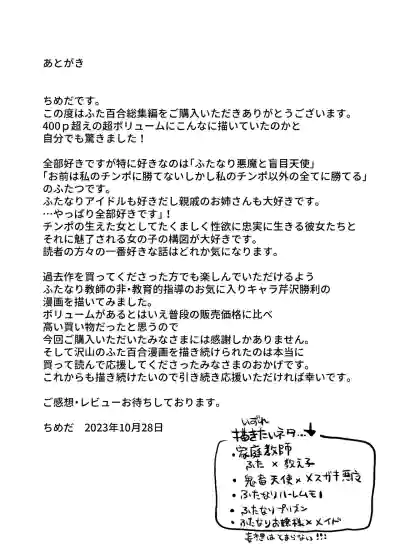 あとがき
ちめだです。
この度はふた百合総集編をご購入いただきありがとうございます。
400p超えの超ボリュームにこんなに描いていたのかと
自分でも驚きました!
全部好きですが特に好きなのは「ふたなり悪魔と盲目天使」
「お前は私のチンポに勝てないしかし私のチンポ以外の全てに勝てる」
のふたつです。
ふたなりアイドルも好きだし親戚のお姉さんも大好きです。
…やっぱり全部好きです」!
チンポの生えた女としてたくましく性欲に忠実に生きる彼女たちと
それに魅了される女の子の構図が大好きです。
読者の方々の一番好きな話はどれか気になります。
過去作を買ってくださった方でも楽しんでいただけるよう
ふたなり教師の非・教育的指導のお気に入りキャラ芹沢勝利の
漫画を描いてみました。
ボリュームがあるとはいえ普段の販売価格に比べ
高い買い物だったと思うので
今回ご購入いただいたみなさまには感謝しかありません。
そして沢山のふた百合漫画を描き続けられたのは本当に
買って読んで応援してくださったみなさまのおかげです。
これからも描き続けたいので引き続き応援いただければ幸いです。
ご感想・レビューお待ちしております。
ちめだ 2023年10月28日
いずれ
描きたいネタ…↓
・家庭教師
ふた×教え子
・鬼畜天使×メスガキ悪魔
・ふたなりハーレムモノ
・ふたなりプリズン
・ふたなりお嬢様×メイド
妄想は止まらない!!!